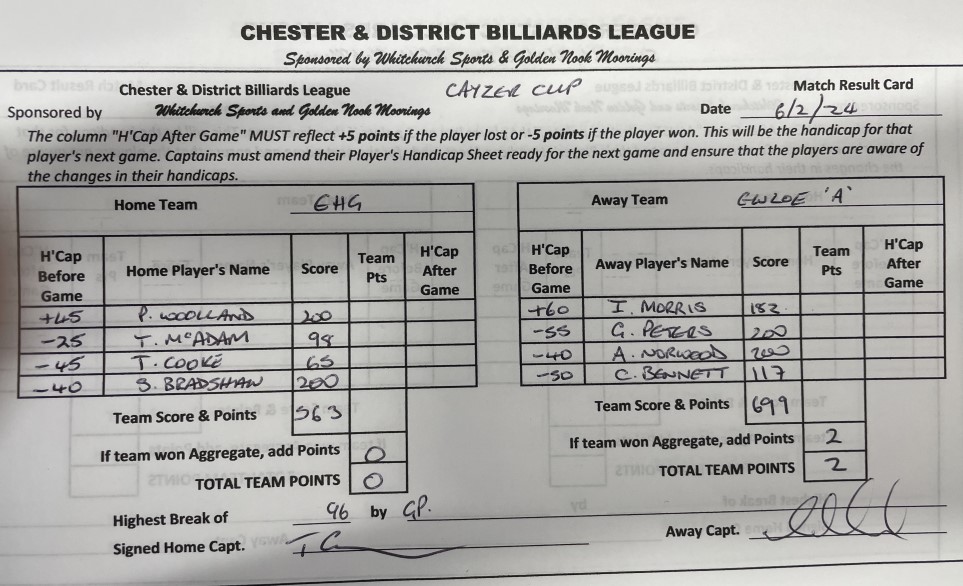 CHESTER & DISTRICT BILLIARDS LEAGUE
Sponsored by Whitchurch Sports & Golden Nook Moorings
Chester & District Billiards League CAYZER CUP Match Result Card
Sponsored by Whitchurch Sports and Golden Nook Moorings Date 6/2/24
The column "H'Cap After Game" MUST reflect +5 points if the player lost or -5 points if the player won. This will be the handicap for that
player's next game. Captains must amend their Player's Handicap Sheet ready for the next game and ensure that the players are aware of
the changes in their handicaps.
Home Team GHG
H'Cap Before Game Home Player's Name Score Team Pts H'Cap After Game
+45 P. WOOLLAND 200
-25 T. McADAM 98
-45 T. COOKE 65
-40 S. BRADSHAW 200
Team Score & Points 563
If team won Aggregate, add Points 0
TOTAL TEAM POINTS 0
Away Team EWLOE 'A'
H'Cap Before Game Away Player's Name Score Team Pts H'Cap After Game
+60 I. MORRIS 182
-55 G. PETERS 200
-40 A. NORWOOD 200
-50 C. BENNETT 117
Team Score & Points 699
If team won Aggregate, add Points 2
TOTAL TEAM POINTS 2
Highest Break of 96 by GP.
Signed Home Capt. TC
Away Capt.